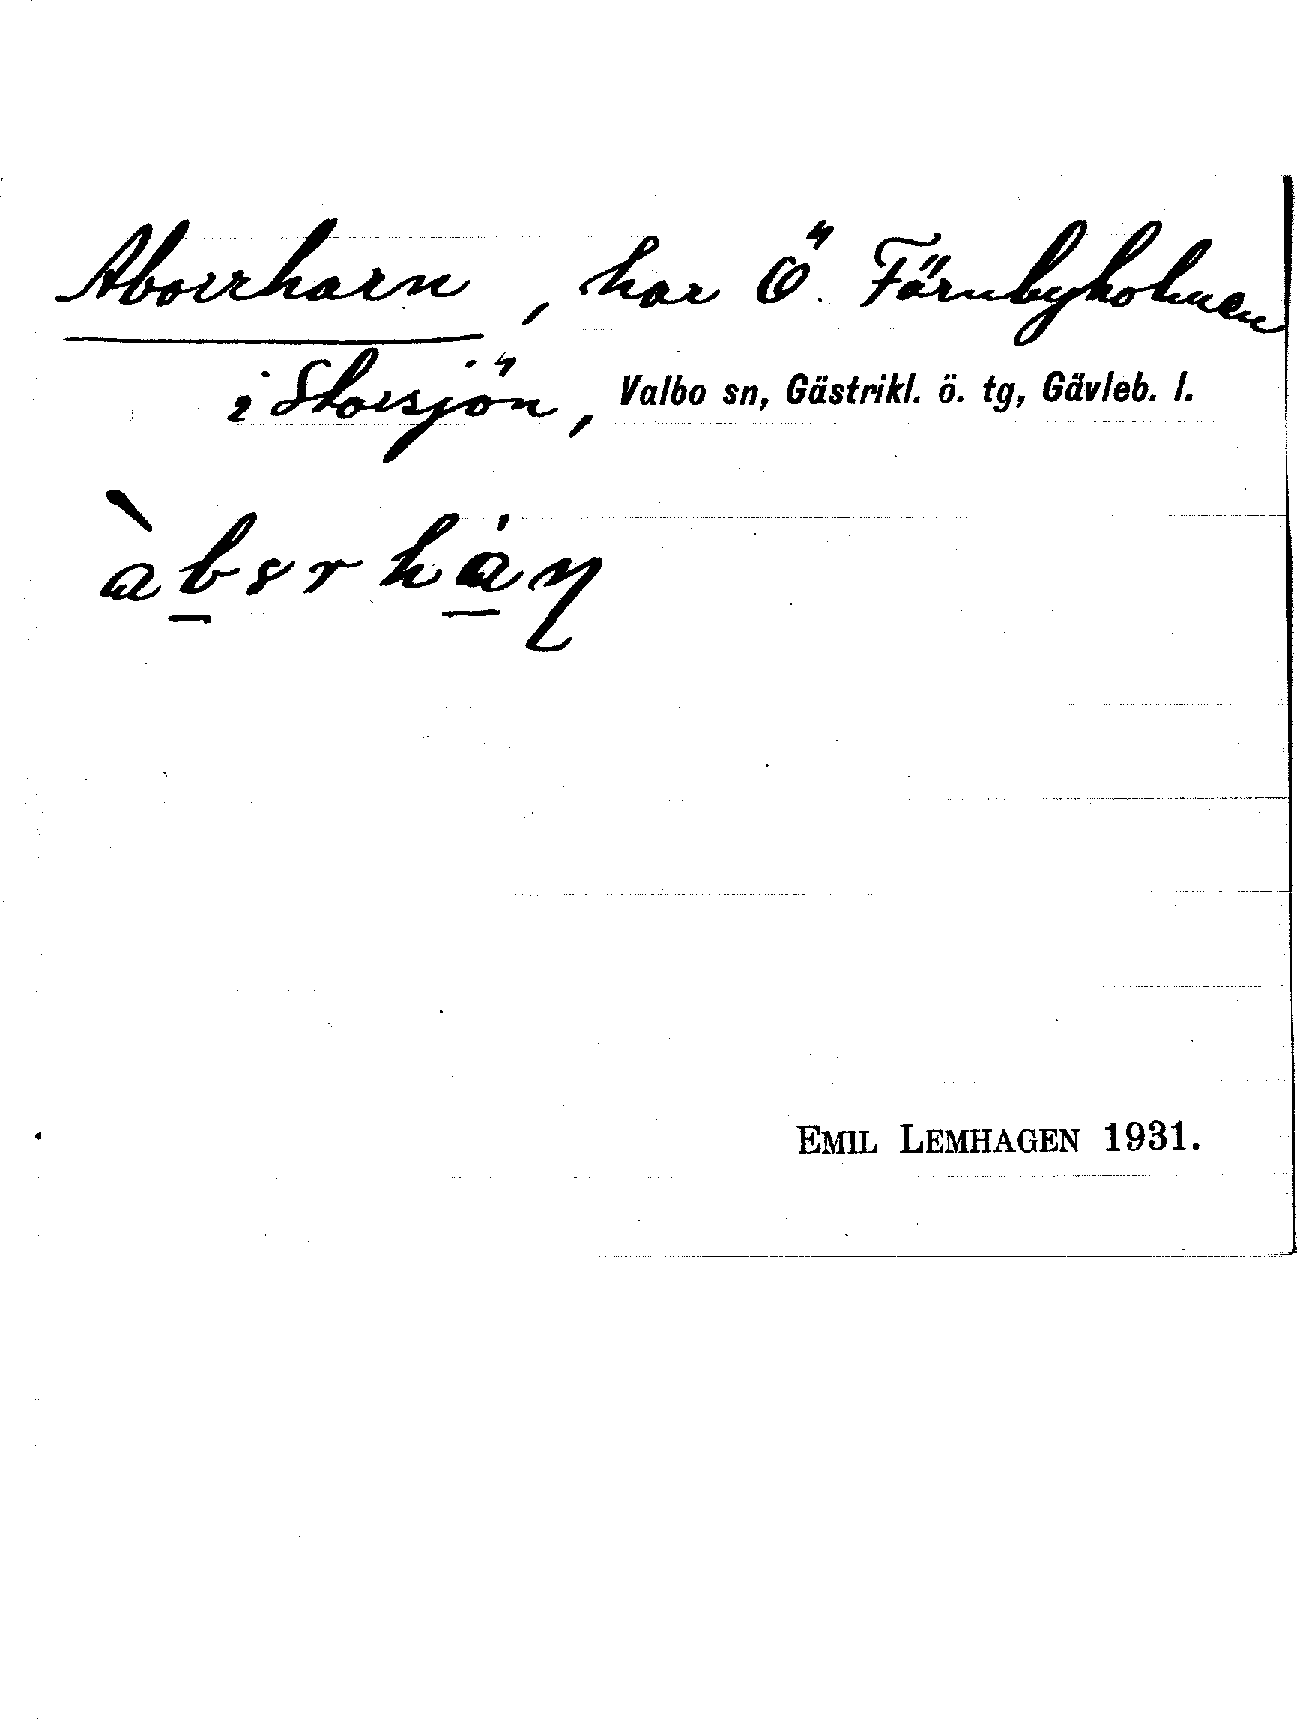 Aborrharn, har Ö. Färnbyholmen
i Storsjön, Valbo sn, Gästrikl. ö. tg, Gävleb. l.
EMIL LEMHAGEN 1931.